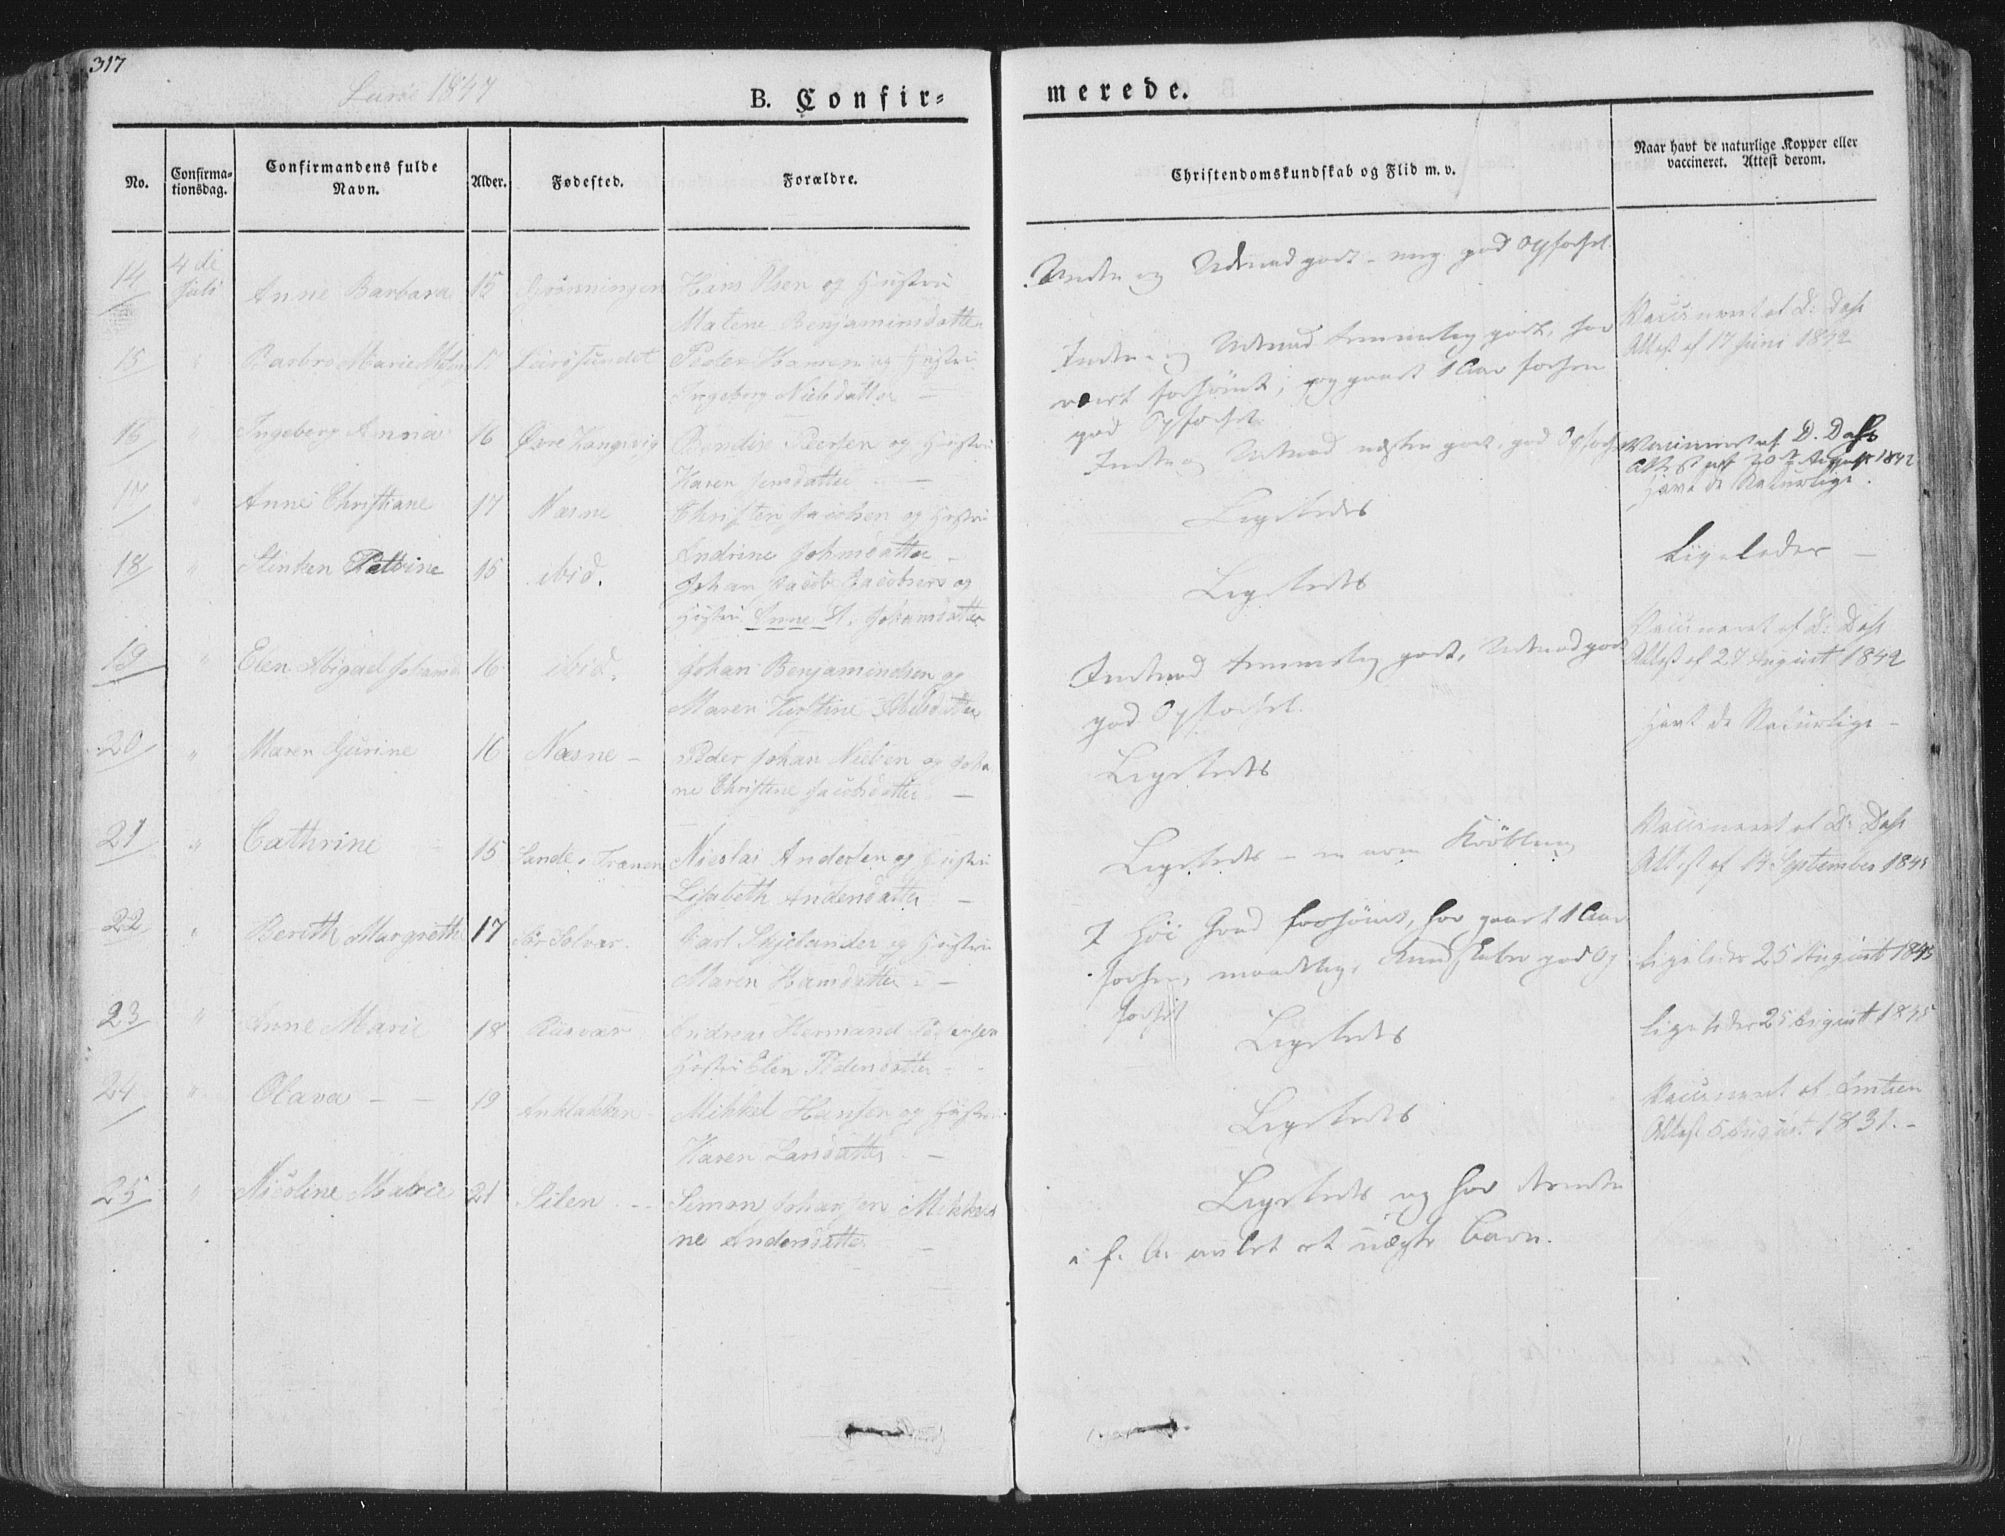 317
Lurøe 1847
B. Confir-
merede.
No.
Confirma-
tionsdag.
Confirmandens fulde
Navn.
Alder.
Fødested.
Forældre.
Christendomskundskab og Flid m. v.
Naar havt de naturlige Kopper eller
vaccineret. Attest derom.
14 4de Juli Anne Barbara 15 Grønningen Hans Olsen og Hustru
Malene Benjaminsdatter
god Opførsel
Vaccineret af D: Dass
Attest af 17 Juni 1842
15 " Barbro Marie 17 Lurøsundet Peder Hansen og Hustru
Ingeborg Nielsdatter
Inden- og Udenad temmelig godt, har
været forsømt; og gaaet 1 Aar forhen
god Opførsel
16 " Ingeborg Anna 16 Øvre Kangsvig Bendix Peersen og Hustru
Karen Jensdatter
Inden og Udenad næsten godt, god Opførsel
Vaccineret af D. Dass
Attest af 20de August 1842
17 " Anne Christiane 17 Næsne Christen Jacobsen og Hustru
Andrine Johnsdatter
Ligeledes
Havt de Naturlige.
18 " Stinken Petrine 15 ibid. Johan Jacob Jacobsen og
Hustru Anne A. Johansdatter
Ligeledes
Ligeledes
19 " Elen Abigael 16 ibid. Johan Benjaminsen og
Maren Kirstine
Indenad temmelig godt, Udenad godt
god Opførsel.
Vaccineret af D: Dass
Attest af 27 August 1842
20 " Maren Gurine 16 Næsne Peder Johan Nielsen og Joha
ne Christine Jacobsdatter
Ligeledes
Havt de Naturlige
21 " Cathrine 15 Sande i Trænen Nicolai Andersen og Hustru
Lisabeth Andersdatter
Ligeledes - er som Krøbling
Vaccineret af D: Dass
Attest af 14 September 1845
22 " Berith Margreth 17 Sør Solvær. Carl Skjelander og Hustru
Maren Hansdatter
I høi Grad forsømt, har gaaet 1 Aar
forhen, maadelig Kundskaber god Op
førsel
Ligeledes 25 August 1845
23 " Anne Marie 18 Andreas Hermand Pedersen
Hustru Elen Pedersdatter
Ligeledes
Ligeledes 25 August 1845
24 " Olava 19 Anklakken Mikkel Hansen og Hustru
Karen Larsdatter
Ligeledes
Vaccineret af
Attest 5 August 1831.
25 " Nicoline Marie 21 Silen Simon Johansen Mikkel
ne Andersdatter
Ligeledes og har
i f. A. avlet et uægte Barn.